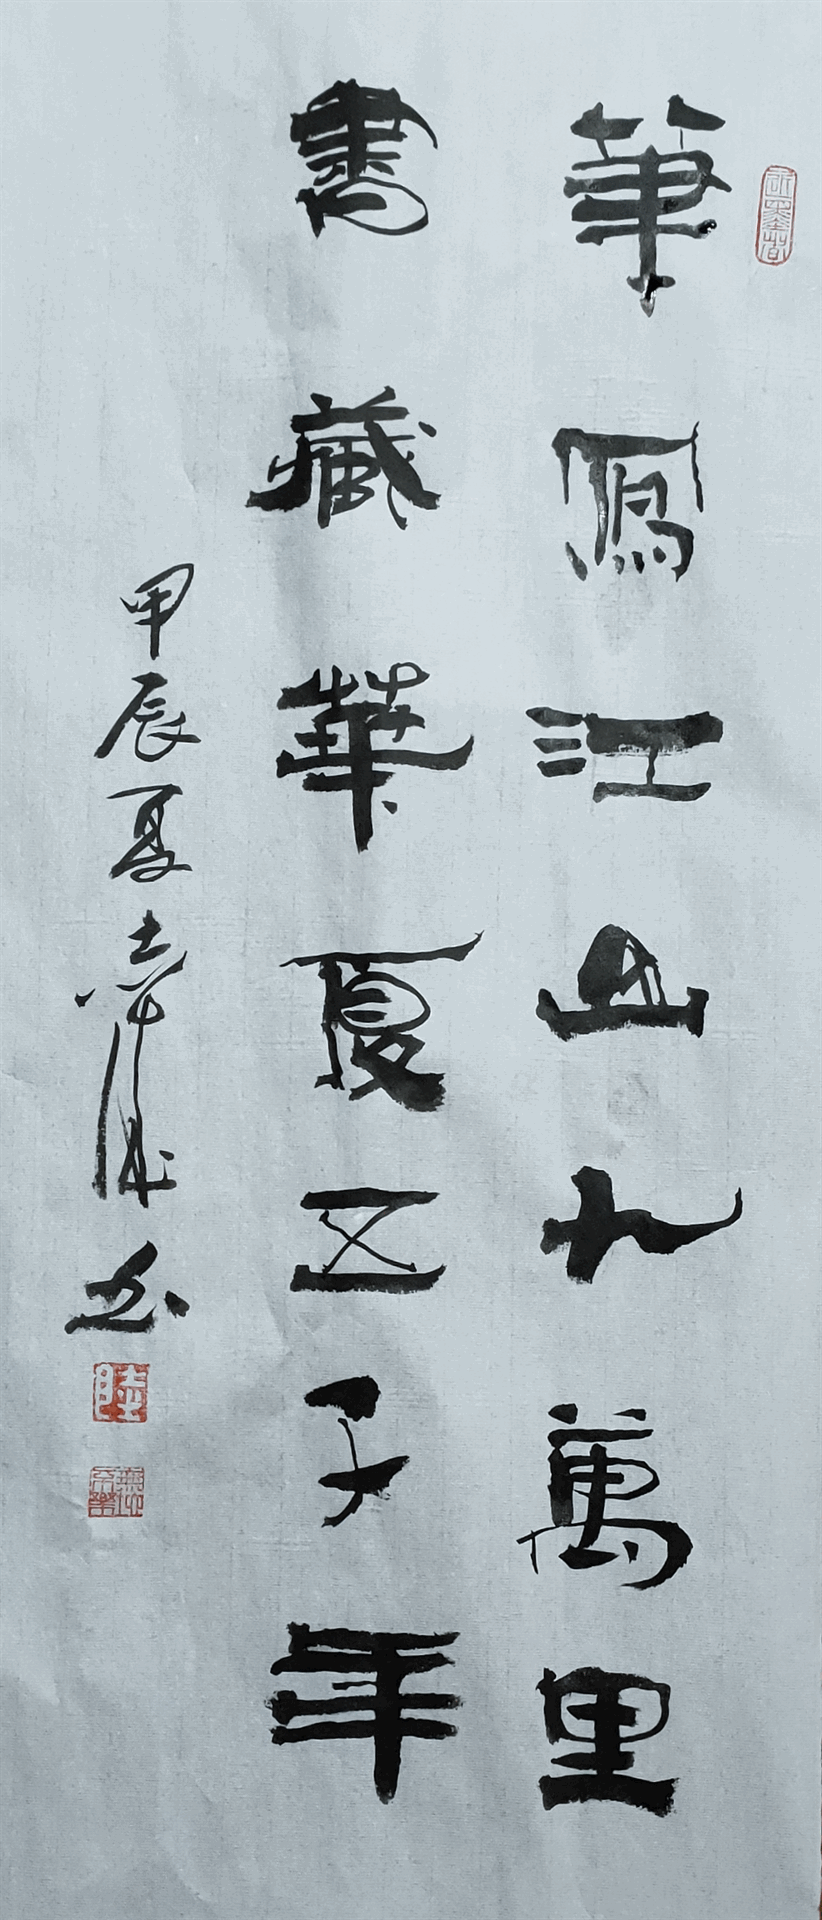 筆寫江山九萬里
書藏華夏五千年
甲辰夏志
陸